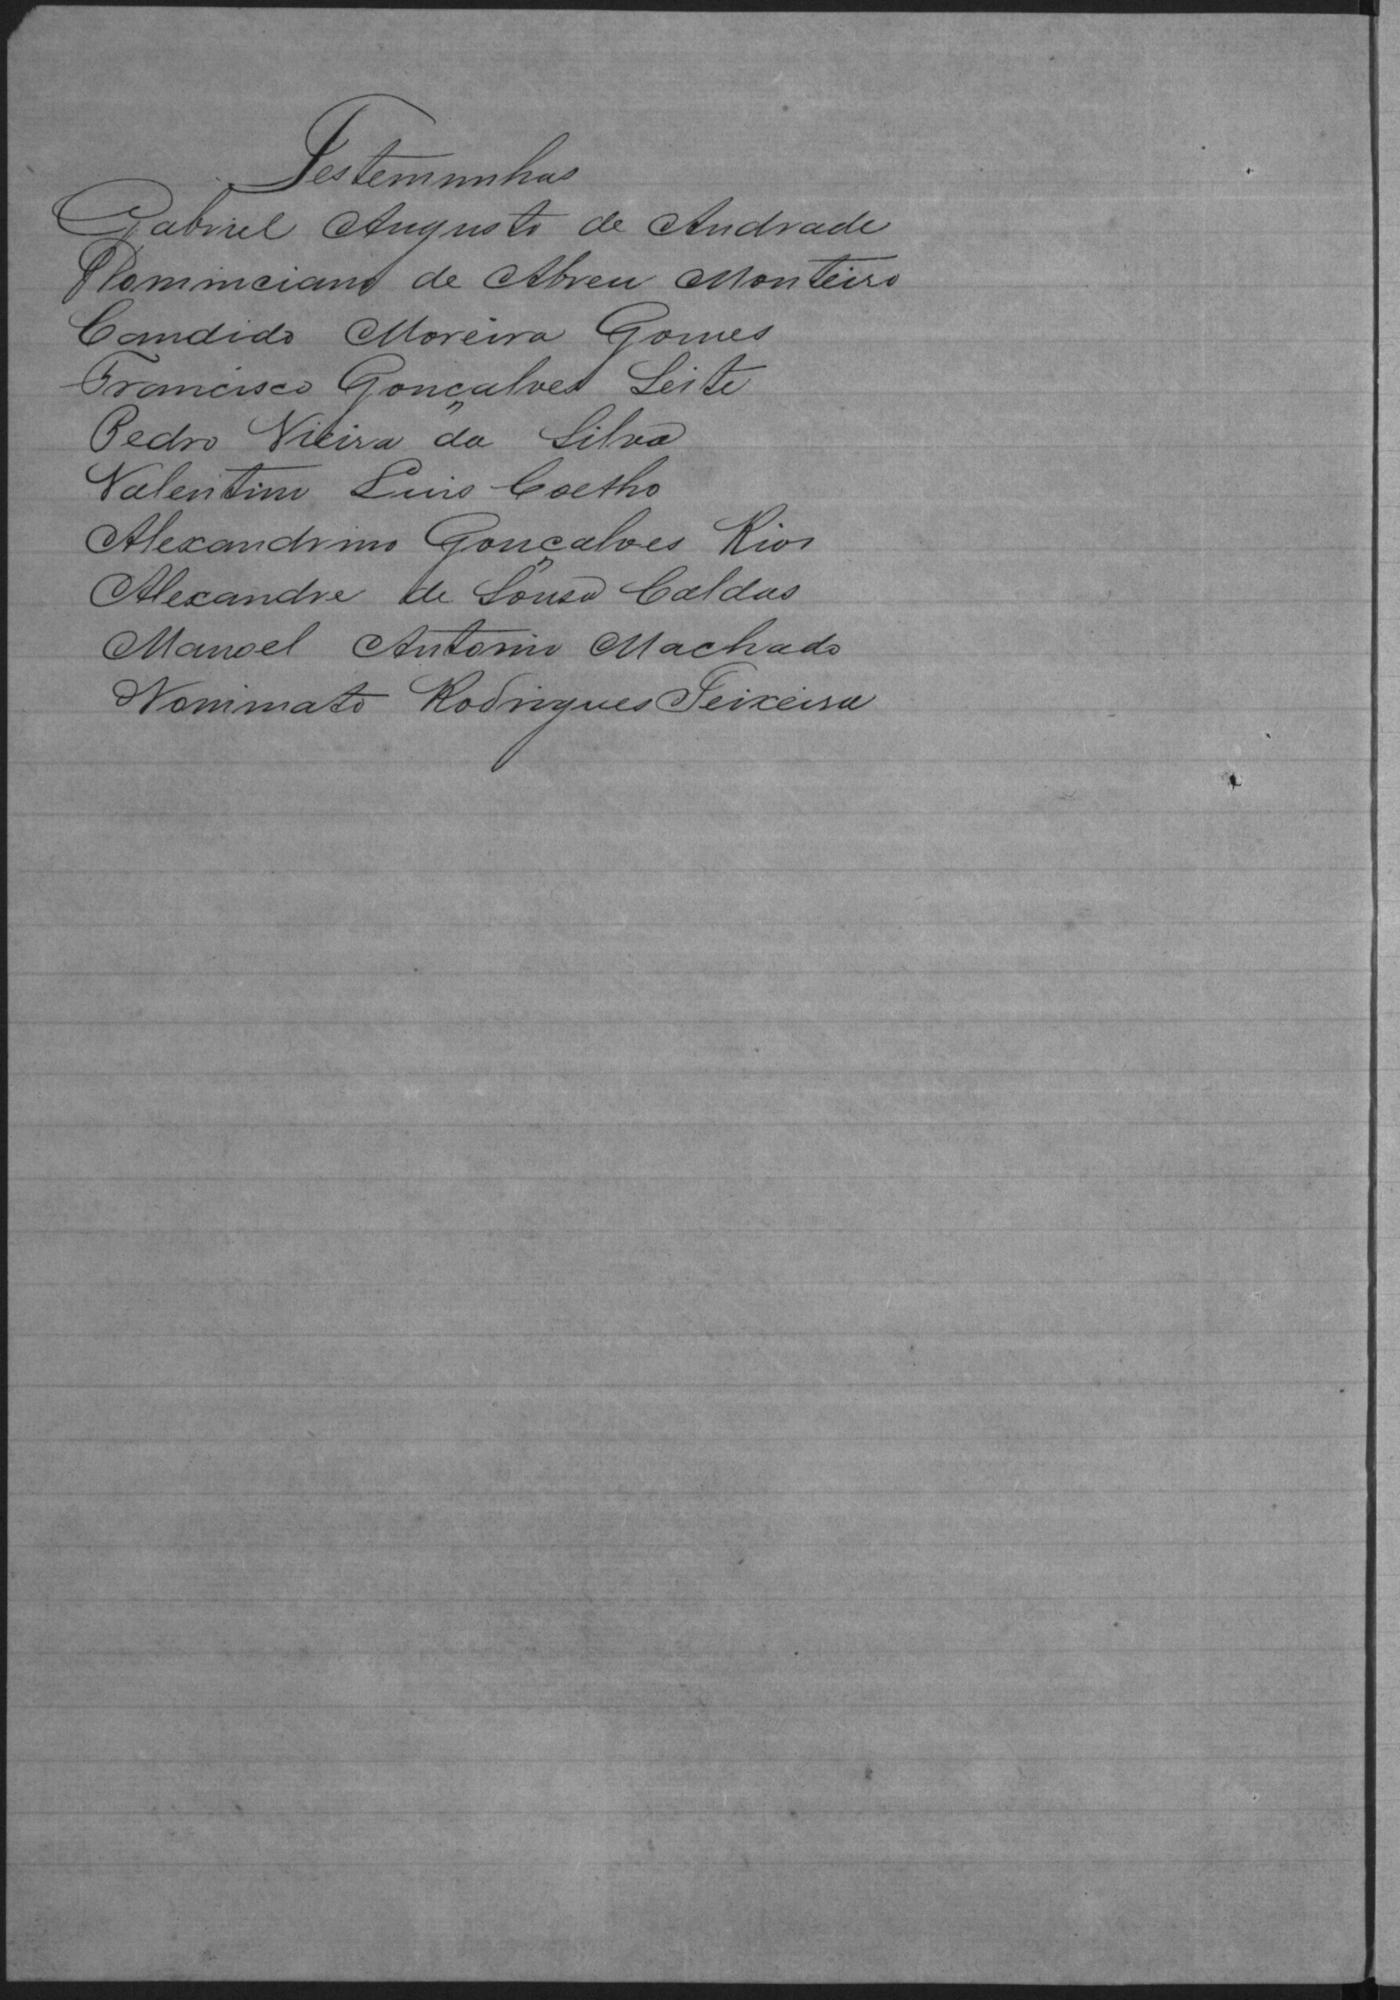 Testemunhas
Gabriel Augusto de Andrade
de Abreu Monteiro
Candido Moreira Gomes
Francisco Gonçalves Leite
Pedro Vieira da Silva
Valentim Luis Coelho
Alexandrino Gonçalves Rios
Alexandre de Sousa Caldas
Manoel Antonio Machado
Nonimato Rodrigues Teixeira